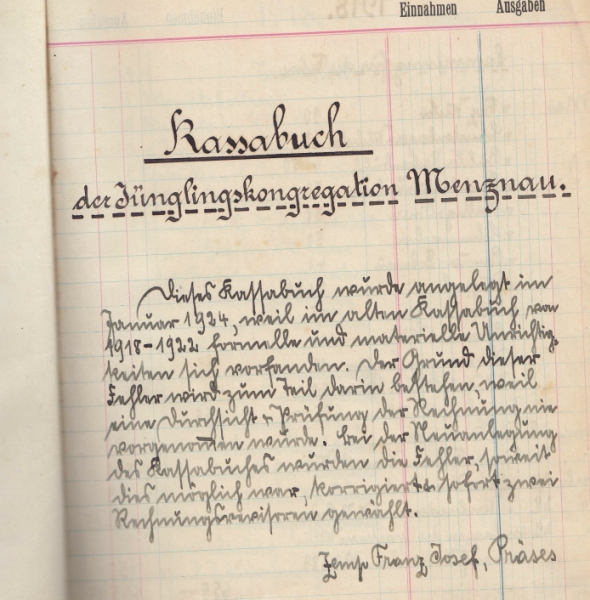 Einnahmen Ausgaben
Kassabuch
der Jünglingskongregation Menznau.
Dieses Kassabuch wurde angelegt im
Januar 1924, weil im alten Kassabuch von
1918-1922 formelle und materielle Unrichtig-
keiten sich vorfanden. Der Grund dieser
Fehler wird zum Teil darin bestehen, weil
eine Durchsicht & Prüfung der Rechnung nie
vorgenommen wurde. Bei der Neuanlegung
des Kassabuches wurden die Fehler, soweit
dies möglich war, korrigiert & sofort zwei
Rechnungsrevisoren gewählt.
Zemp Franz Josef, Präses